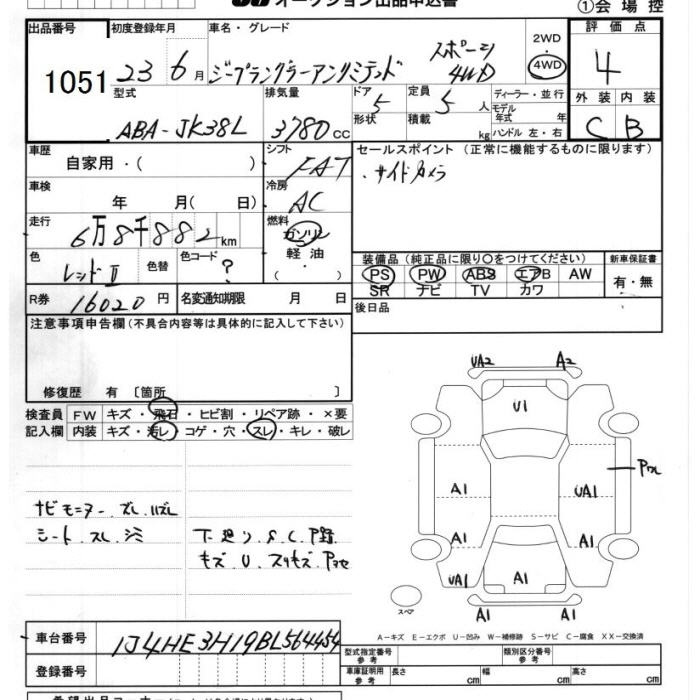 オークション出品申込書
①会場控
出品番号 初度登録年月 車名・グレード 2WD・4WD 評価点
1051 23 6月 ジープラングラーアンリミテッド スポーツ 4WD 4
型式 排気量 ドア形状 定員 積載 ディーラー・並行 モデル年式 年 ハンドル 左・右 外装 内装
ABA-JK38L 3780cc 5 5人 kg C B
車歴 シフト セールスポイント (正常に機能するものに限ります)
自家用・( ) FAT ・サイドカメラ
車検 冷房
年 月( 日) AC
走行 燃料
6万8千882km ガソリン
色 色替 色コード 軽油
レッドⅡ ? ( )
装備品(純正品に限り〇をつけてください) 新車保証書
PS PW ABS エアB AW 有・無
SR ナビ TV カワ
R券 16020円 名変通知期限 月 日
後日品
注意事項申告欄(不具合内容等は具体的に記入して下さい)
修復歴 有 〔箇所 〕
検査員 FW キズ・飛石・ヒビ割・リペア跡・×要
記入欄 内装 キズ・汚レ・コゲ・穴・スレ・キレ・破レ
UA2 A2
U1
Pワレ
A1 UA1
A1 A1
UA1 A1
A1 A1
スペア
ナビモニター.ズレ.ハズレ
シート.スレ.シミ
下廻り.S.C.P
キズ U.スリキズ.P
A-キズ E-エクボ U-凹み W-補修跡 S-サビ C-腐食 XX-交換済
車台番号 1J4HE3H19BL564454
登録番号
型式指定番号 参考 類別区分番号 参考
車庫証明用 参考 長さ cm 幅 cm 高さ cm